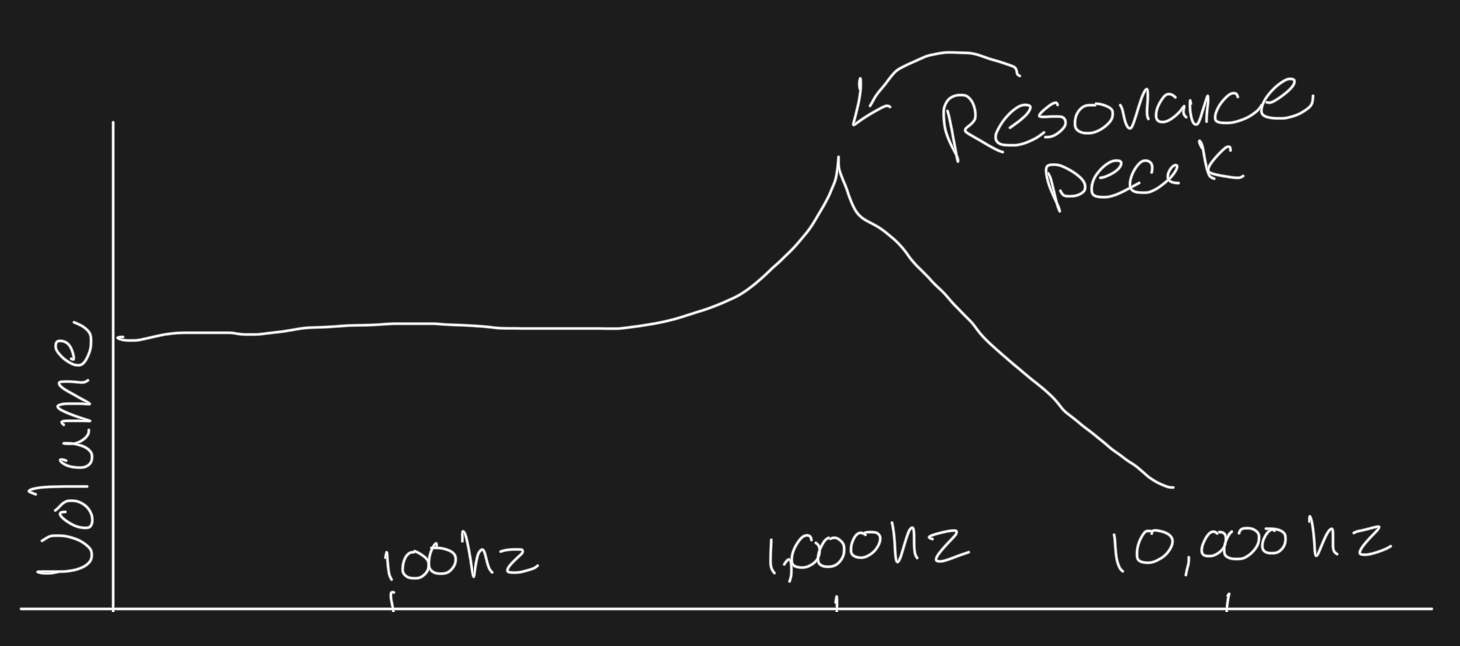 Resonance
peak
Volume
100hz
1,000hz
10,000hz